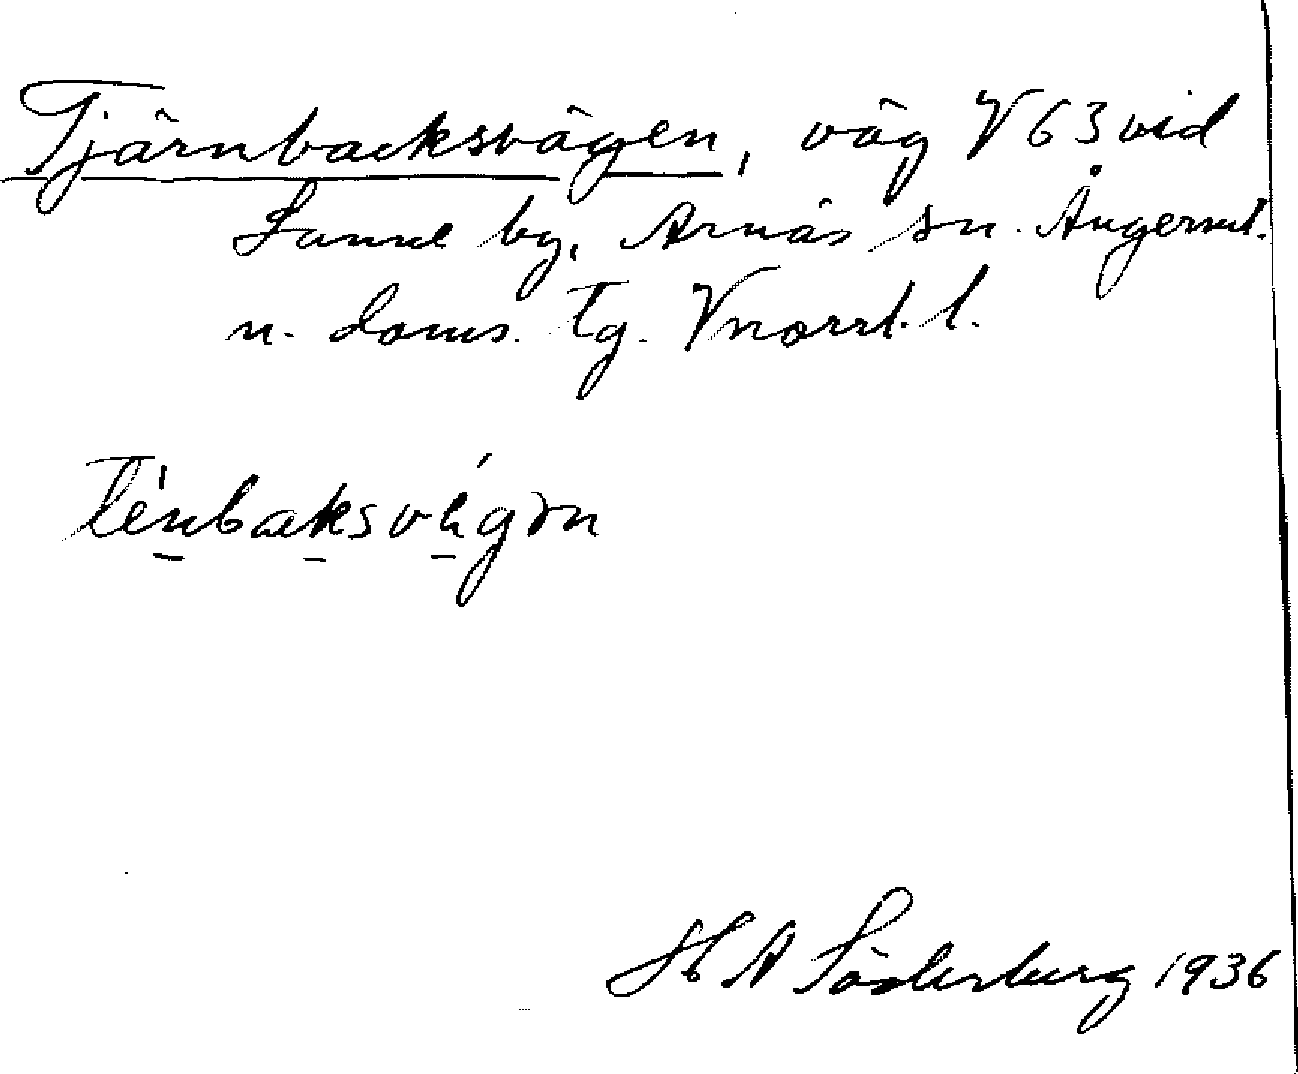 Tjärnbacksvägen, väg V 63 vid
Sunne by, Arnäs sn. Ångerml.
n. doms. tg. Vnorrl. l.
H A Söderberg 1936